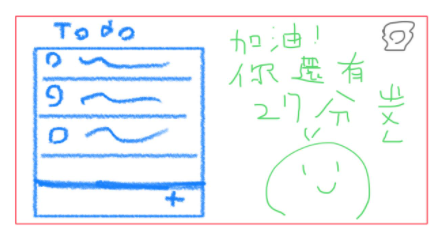 Todo
+
加油!
你還有
27分ㄓㄨㄥ